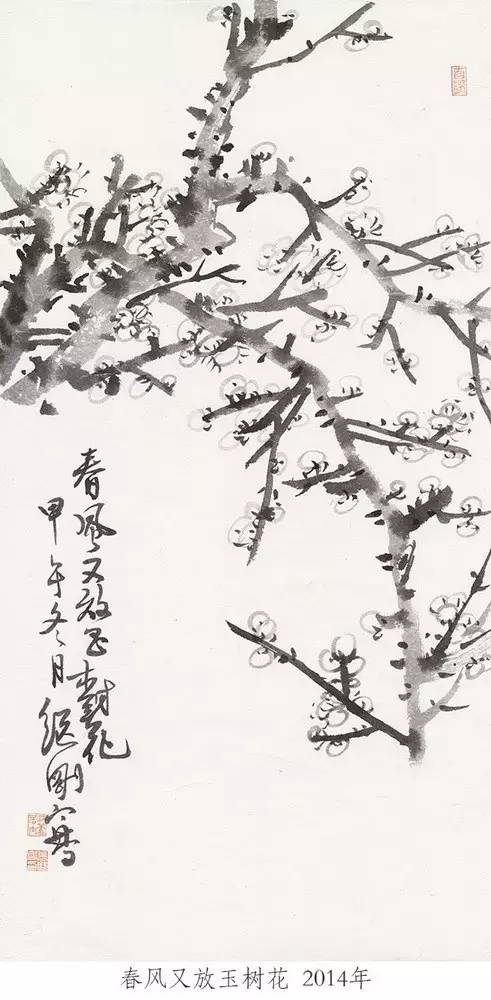 春風又放玉樹花
甲午冬月継剛寫
春风又放玉树花 2014年